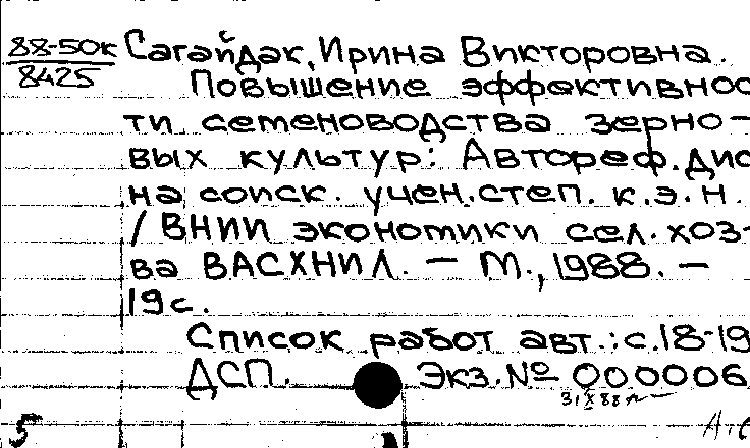 88-50к
8425
Сагайдак, Ирина Викторовна.
Повышение эффективнос
ти семеноводства зерно-
вых культур: Автореф. дис
на соиск. учен. степ. к.э.н.
/ ВНИИ экономики сел. хоз-
ва ВАСХНИЛ. – М., 1988. –
19 с.
Список работ авт.: с. 18-19
ДСП. Экз. № 000006
5